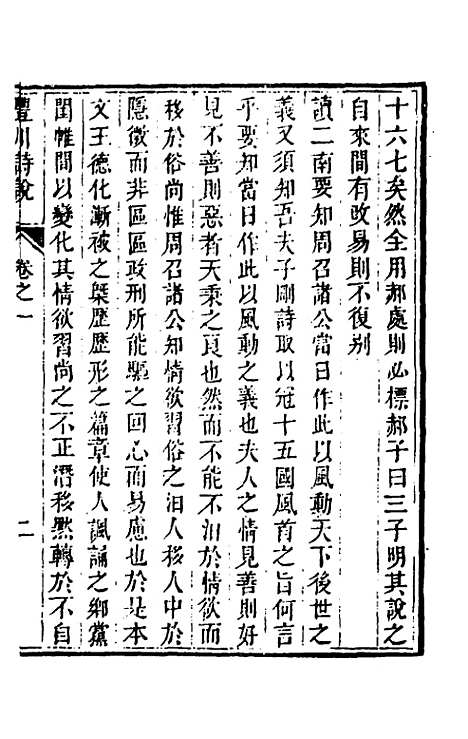 十六七矣然全用郝處則必標郝子曰三子明其說之
自來間有改易則不復别
讀二南要知周召諸公當日作此以風動天下後世之
義又須知吾夫子刪詩取以冠十五國風首之旨何言
乎要知當日作此以風動之義也夫人之情見善則好
見不善則惡者天秉之良也然而不能不汨於情欲而
移於俗尚惟周召諸公知情欲習俗之汨人移人中於
隱微而非區區政刑所能驅之囘心而易慮也於是本
文王德化漸被之槩歷歷形之篇章使人諷誦之鄉黨
閨帷間以變化其情欲習尚之不正潛移黙轉於不自
豐川詩說
卷之一
二